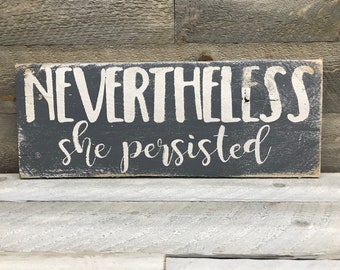 NEVERTHELESS
she persisted